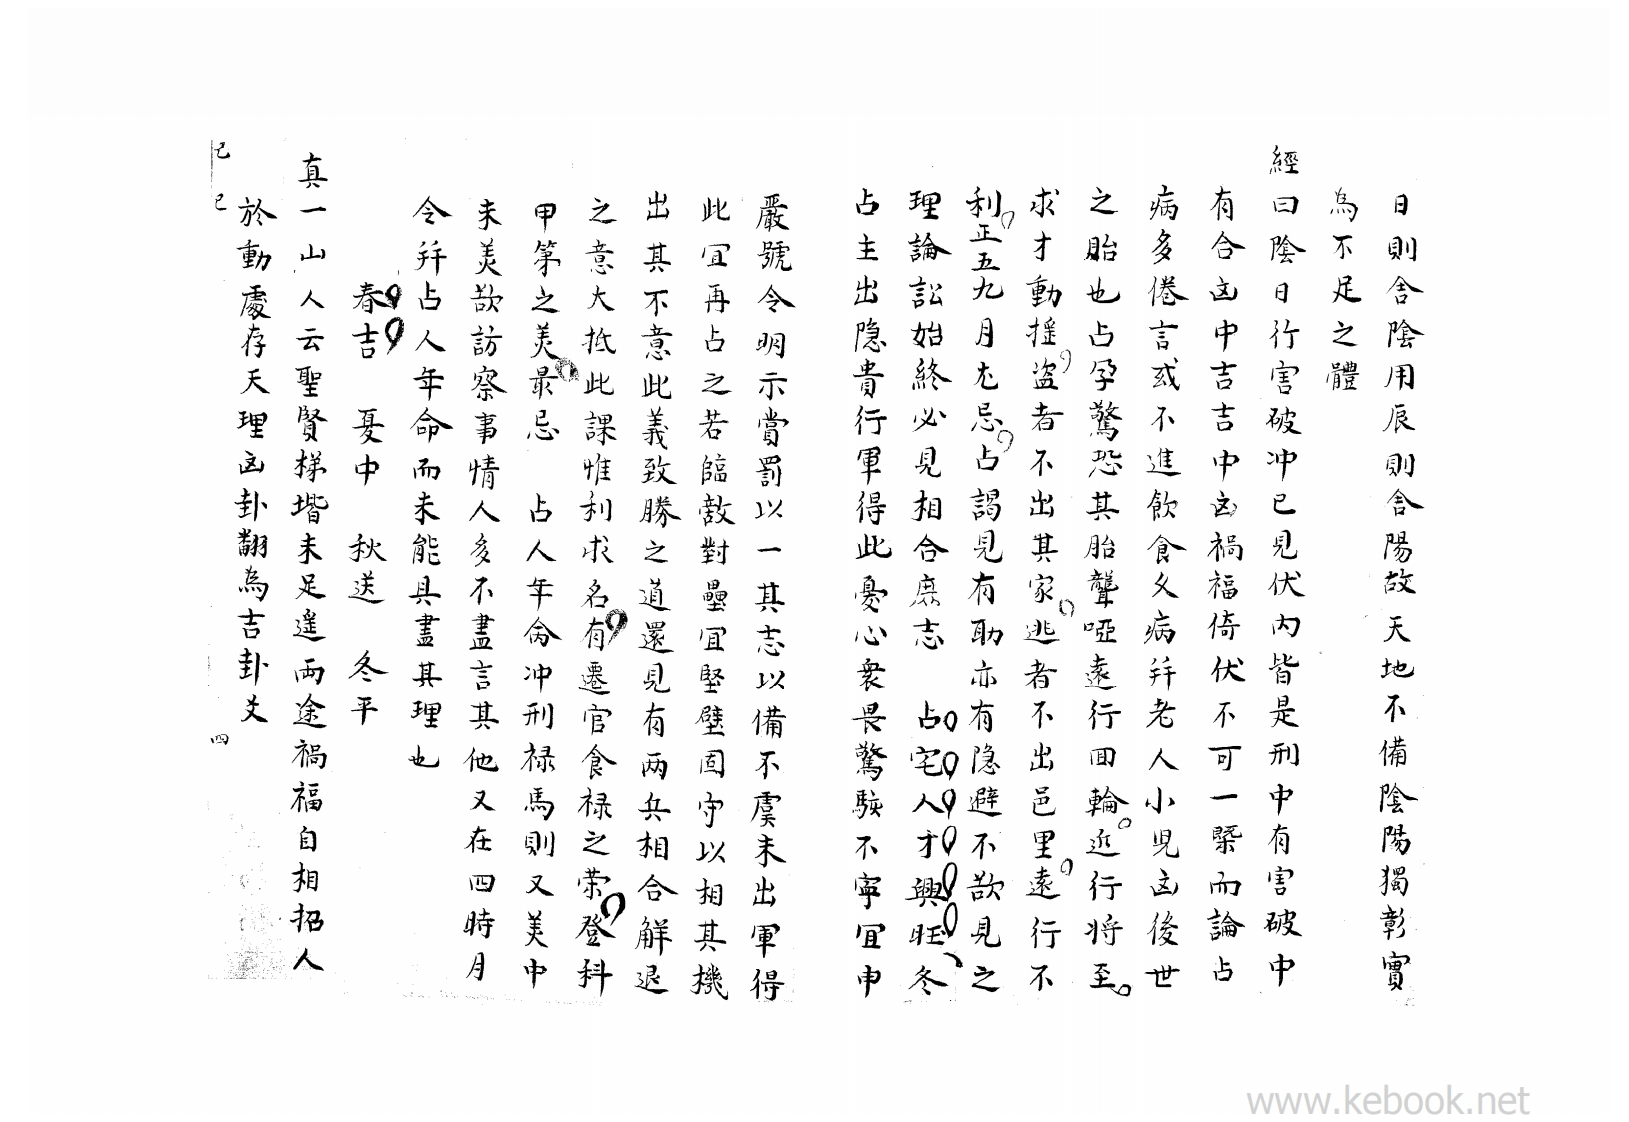 日則舍陰用辰則舍陽故天地不備陰陽獨彰實
為不足之體
經曰陰日行害破冲已見伏內皆是刑中有害破中
有合凶中吉吉中凶禍福倚伏不可一槩而論占
病多倦言或不進飲食久病并老人小児凶後世
之胎也占孕驚恐其胎聾啞遠行回輪近行将至
求才動摇盗者不出其家逃者不出邑里遠行不
利正五九月尤忌占謁見有助亦有隐避不欲見之
理論訟始終必見相合庶志　占宅人才興旺冬
占主出隐貴行軍得此憂心衆畏驚駭不寧宜申
嚴號令明示賞罰以一其志以備不虞未出軍得
此宜再占之若臨敵對壘宜堅壁固守以相其機
出其不意此義致勝之道還見有两兵相合觧退
之意大抵此課惟利求名有遷官食禄之荣登科
甲第之美最忌　占人年命冲刑禄馬則又美中
未美欲訪察事情人多不盡言其他又在四時月
令并占人年命而未能具盡其理也
春吉　夏中　秋送　冬平
真一山人云聖賢梯堦未足遥兩途禍福自相招人
於動處存天理凶卦翻為吉卦爻
己巳
四
www.kebook.net